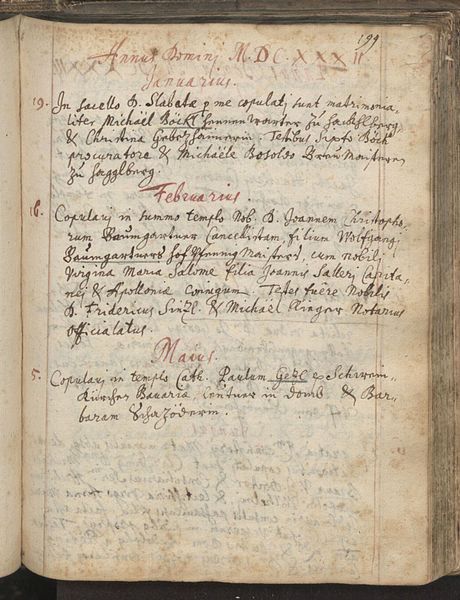 199
Annus Dominj M.DC.XXXXII
Januarius.
19. In sacello D. Slabatæ p me copulatj sunt matrimonia
liter Michaël Böckl zu
& Christina Testibus Böck
procuratore & Michaële Bosolds Brew Maistern
zu Hagglberg.
Februarius.
16. Copulavj in summo templo Nob. D. Joannem Christopho-
rum Baumgartner Cancellistam, filium Wolfgangj
Baumgartners Hof Maisters, cum nobilj
Virgine Maria Salome filia Joannis Sallerj Capita-
nej & Apolloniæ coniugum. Testes fuere Nobilis
D. Fridericus Sinzl. & Michaël Rieger Notarius
officialatus.
Maius.
5. Copulavj in templo Cath. Paulum Gezl ex Schwein-
kürchen Bavariæ, in Domb & Bar-
baram